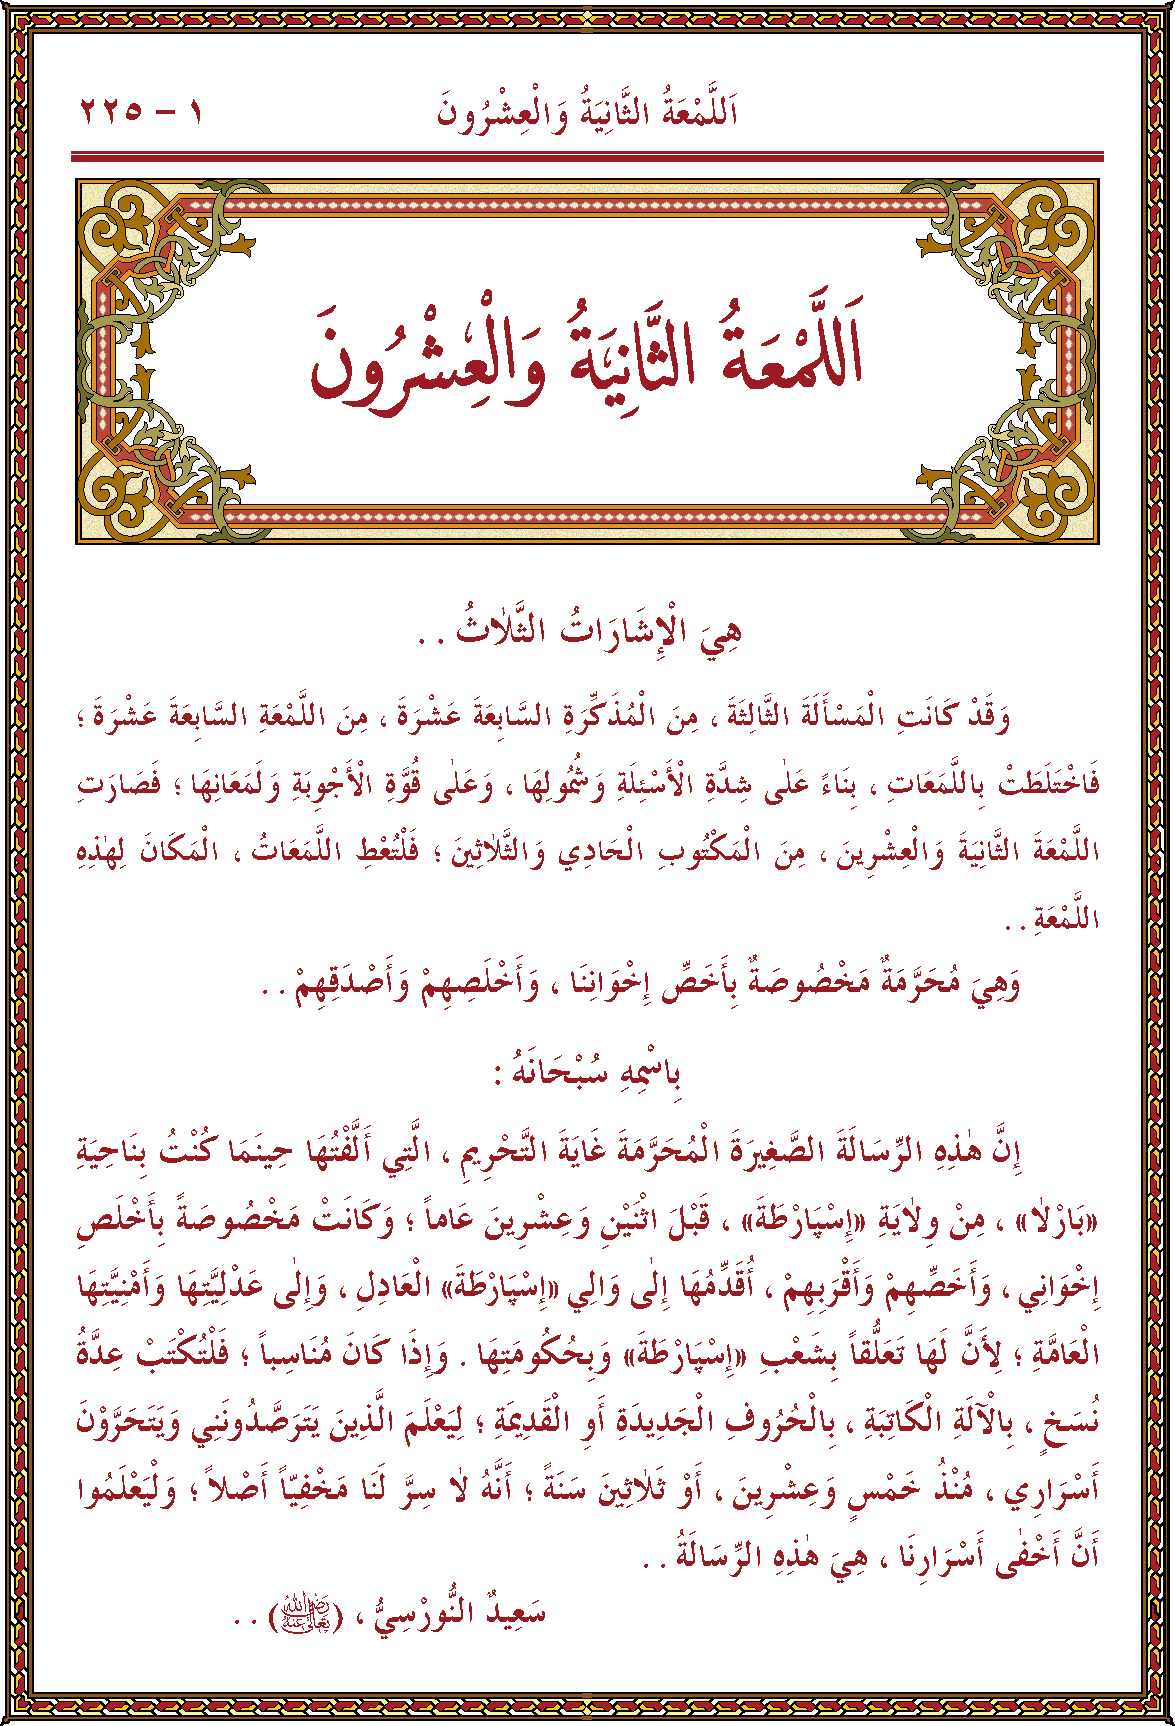 اَللَّمْعَةُ الثَّانِيَةُ وَالْعِشْرُونَ
١ – ٢٢٥
اَللَّمْعَةُ الثَّانِيَةُ وَالْعِشْرُونَ
هِيَ الْإِشَارَاتُ الثَّلَاثُ . .
وَقَدْ كَانَتِ الْمَسْأَلَةَ الثَّالِثَةَ ، مِنَ الْمُذَكِّرَةِ السَّابِعَةَ عَشْرَةَ ، مِنَ اللَّمْعَةِ السَّابِعَةَ عَشْرَةَ ؛
فَاخْتَلَطَتْ بِاللَّمَعَاتِ ، بِنَاءً عَلٰى شِدَّةِ الْأَسْئِلَةِ وَشُمُولِهَا ، وَعَلٰى قُوَّةِ الْأَجْوِبَةِ وَلَمَعَانِهَا ؛ فَصَارَتِ
اللَّمْعَةَ الثَّانِيَةَ وَالْعِشْرِينَ ، مِنَ الْمَكْتُوبِ الْحَادِي وَالثَّلَاثِينَ ؛ فَلْتُعْطِ اللَّمَعَاتُ ، الْمَكَانَ لِهٰذِهِ
اللَّمْعَةِ . .
وَهِيَ مُحَرَّمَةٌ مَخْصُوصَةٌ بِأَخَصِّ إِخْوَانِنَا ، وَأَخْلَصِهِمْ وَأَصْدَقِهِمْ . .
بِاسْمِهِ سُبْحَانَهُ :
إِنَّ هٰذِهِ الرِّسَالَةَ الصَّغِيرَةَ الْمُحَرَّمَةَ غَايَةَ التَّحْرِيمِ ، الَّتِي أَلَّفْتُهَا حِينَمَا كُنْتُ بِنَاحِيَةِ
«بَارْلَا» ، مِنْ وِلَايَةِ «إِسْپَارْطَةَ» ، قَبْلَ اثْنَيْنِ وَعِشْرِينَ عَاماً ؛ وَكَانَتْ مَخْصُوصَةً بِأَخْلَصِ
إِخْوَانِي ، وَأَخَصِّهِمْ وَأَقْرَبِهِمْ ، أُقَدِّمُهَا إِلٰى وَالِي «إِسْپَارْطَةَ» الْعَادِلِ ، وَإِلٰى عَدْلِيَّتِهَا وَأَمْنِيَّتِهَا
الْعَامَّةِ ؛ لِأَنَّ لَهَا تَعَلُّقاً بِشَعْبِ «إِسْپَارْطَةَ» وَبِحُكُومَتِهَا . وَإِذَا كَانَ مُنَاسِباً ؛ فَلْتُكْتَبْ عِدَّةُ
نُسَخٍ ، بِالْآلَةِ الْكَاتِبَةِ ، بِالْحُرُوفِ الْجَدِيدَةِ أَوِ الْقَدِيمَةِ ؛ لِيَعْلَمَ الَّذِينَ يَتَرَصَّدُونَنِي وَيَتَحَرَّوْنَ
أَسْرَارِي ، مُنْذُ خَمْسٍ وَعِشْرِينَ ، أَوْ ثَلَاثِينَ سَنَةً ؛ أَنَّهُ لَا سِرَّ لَنَا مَخْفِيّاً أَصْلاً ؛ وَلْيَعْلَمُوا
أَنَّ أَخْفٰى أَسْرَارِنَا ، هِيَ هٰذِهِ الرِّسَالَةُ . .
سَعِيدٌ النُّورْسِيُّ ، (رضي الله تعالى عنه) . .